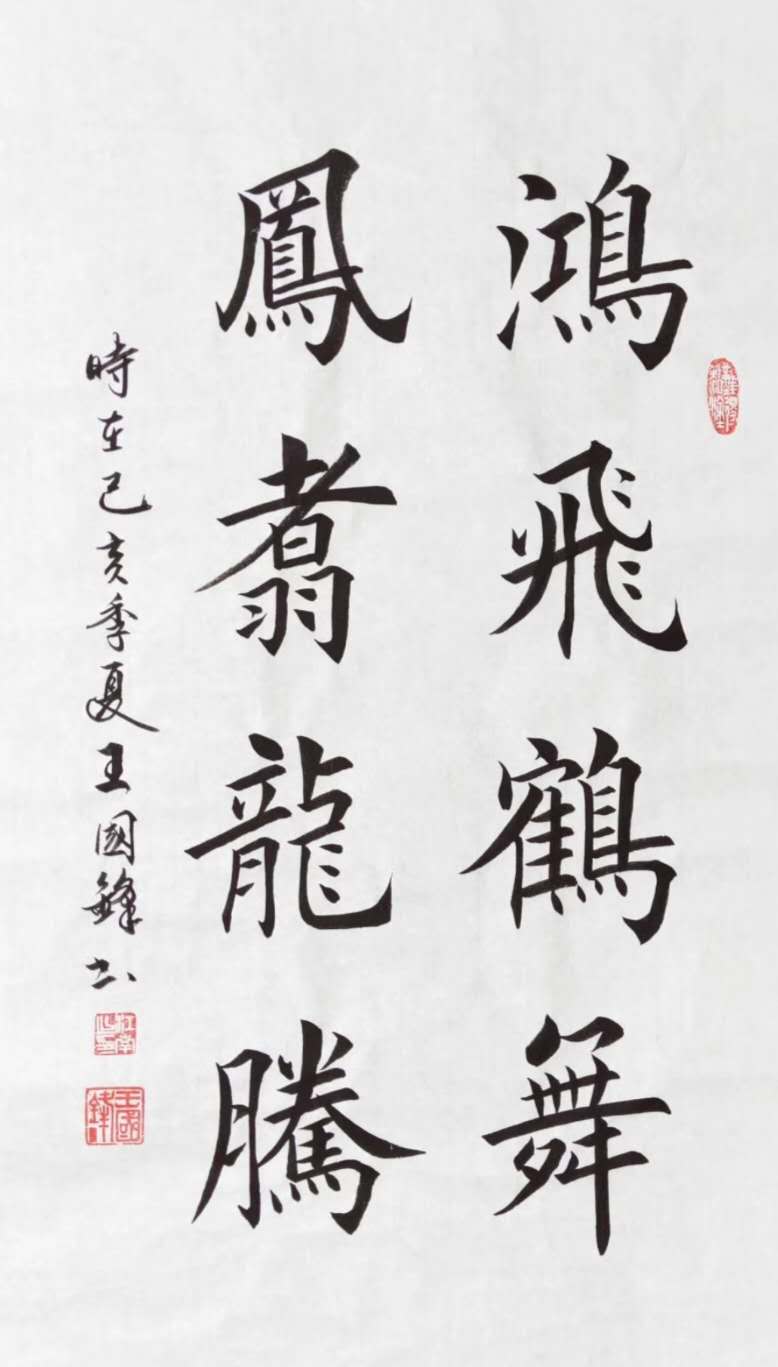 鴻飛鶴舞
鳳翥龍騰
時在己亥季夏王國鋒书
王國鋒